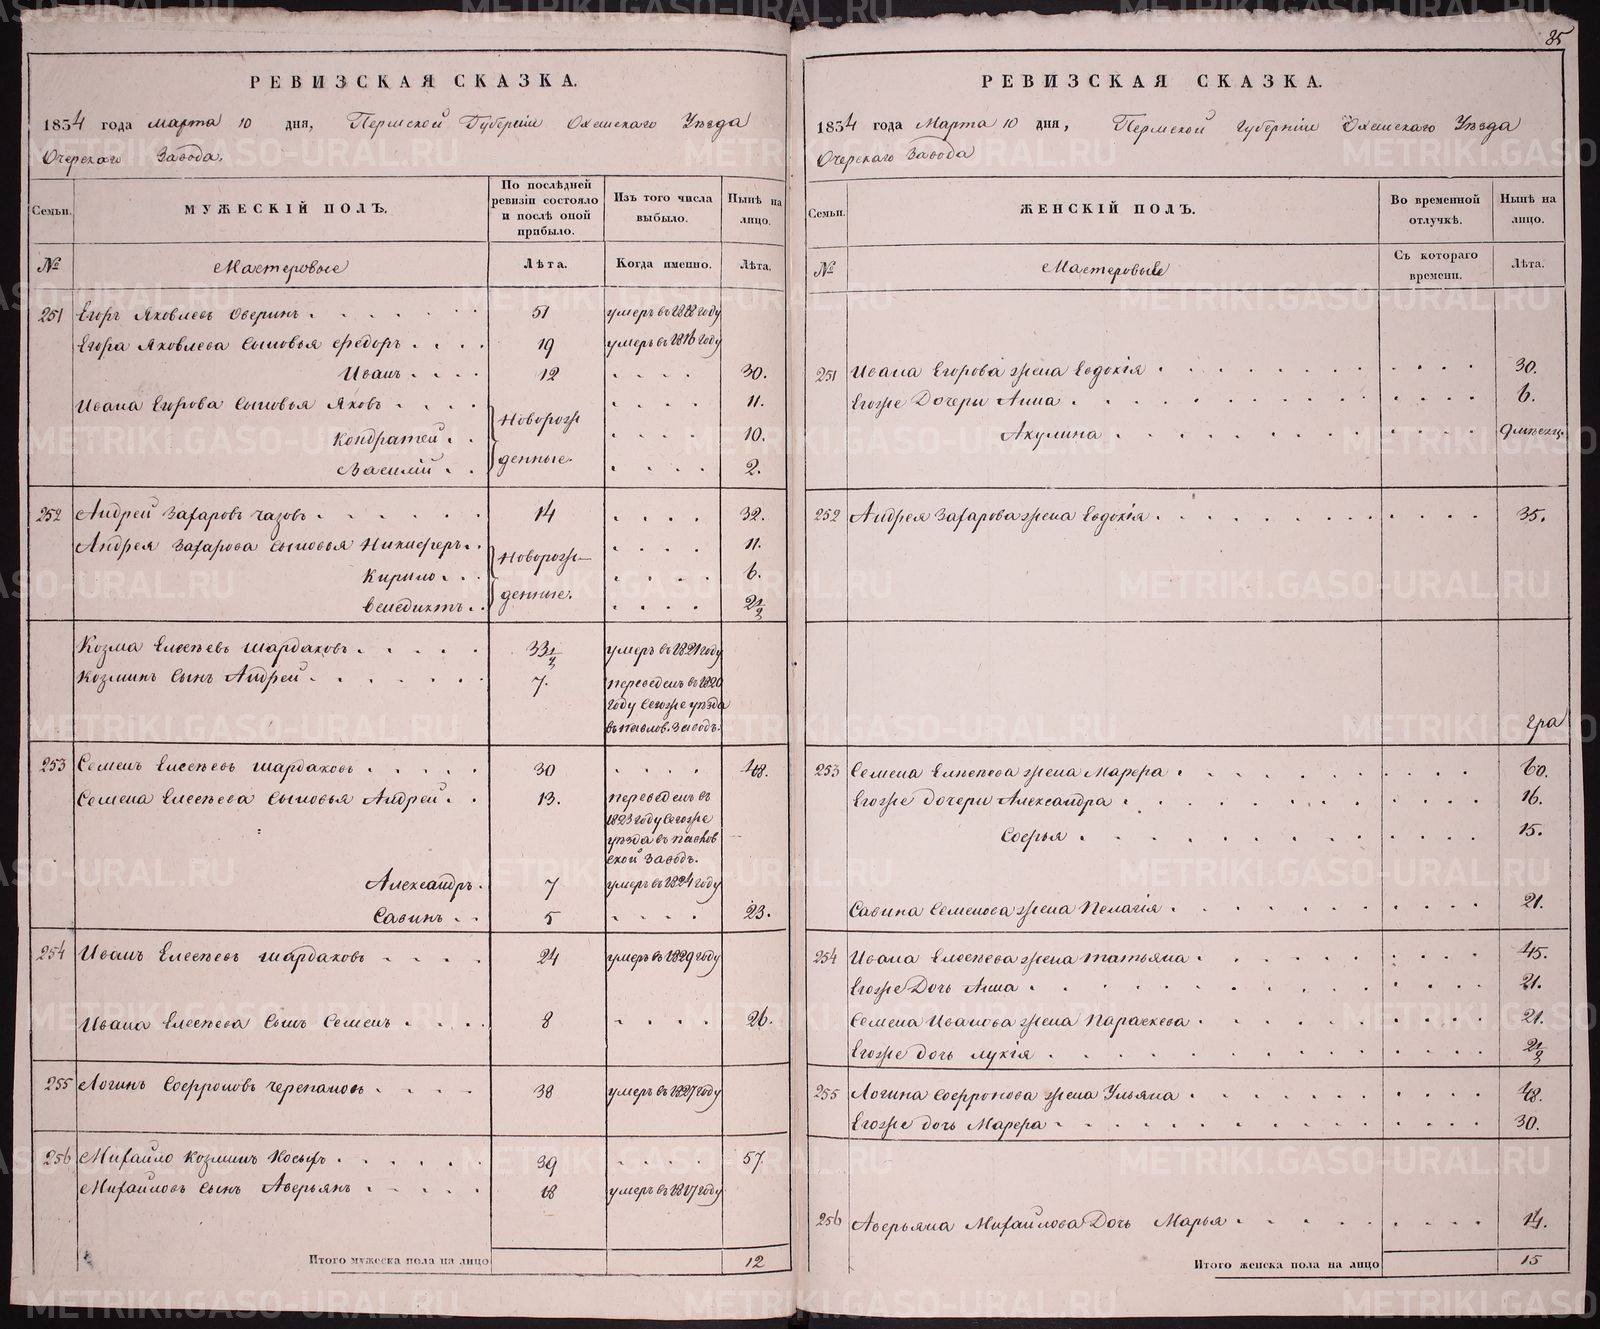 85
РЕВИЗСКАЯ СКАЗКА.
1834 года Марта 10 дня, Пермской Губернии Оханскаго Уѣзда
Очерскаго Завода.
Семьи.
МУЖЕСКІЙ ПОЛЪ.
По послѣдней ревизіи состояло и послѣ оной прибыло.
Изъ того числа выбыло.
Нынѣ на лицо.
№ Мастеровые Лѣта. Когда именно. Лѣта.
251 Егоръ Яковлевъ Оверинъ 51 умеръ въ 1822 году
Егора Яковлева Сыновья Федоръ 19 умеръ въ 1816 году
Иванъ 12 30.
Ивана Егорова Сыновья Яковъ 11.
Новорож
Кондратей 10.
денные.
Василій 2.
252 Андрей Захаровъ Чазовъ 14 32.
Андрея Захарова Сыновья Никифоръ 11.
Новорож-
Кирило 6.
денные.
Венедиктъ 2½
Козма Елесѣевъ Шардаковъ 33½ умеръ въ 1821 году
Козминъ Сынъ Андрей 7. переведенъ въ 1820
году Сегоже уѣзда
въ Павлов. Заводъ.
253 Семенъ Елесѣевъ Шардаковъ 30 48.
Семена Елесѣева Сыновья Андрей 13. переведенъ въ
1823 году Сегоже
уѣзда въ Павлов
ской Заводъ.
Александръ 7 умеръ въ 1824 году
Савинъ 5 23.
254 Иванъ Елесѣевъ Шардаковъ 24 умеръ въ 1829 году
Ивана Елесѣева Сынъ Семенъ 8 26.
255 Логинъ Софроновъ Черепановъ 38 умеръ въ 1827 году
256 Михайло Козминъ Носыръ 39 57.
Михайловъ Сынъ Аверьянъ 18 умеръ въ 1817 году
Итого мужеска пола на лицо 12
РЕВИЗСКАЯ СКАЗКА.
1834 года Марта 10 дня, Пермской Губерніи Оханскаго Уѣзда
Очерскаго Завода
Семьи.
ЖЕНСКІЙ ПОЛЪ.
Во временной отлучкѣ.
Нынѣ на лицо.
№ Мастеровые Съ котораго времени. Лѣта.
251 Ивана Егорова жена Евдокія 30.
Егоже Дочери Анна 6.
Акулина 9 мѣсяц.
252 Андрея Захарова жена Евдокія 35.
253 Семена Елисѣева жена Марфа 60.
Егоже дочери Александра 16.
Софья 15.
Савина Семенова жена Пелагія 21.
254 Ивана Елесѣева жена Татьяна 45.
Егоже Дочь Анна 21.
Семена Иванова жена Параскева 21.
Егоже дочь Лукія 2½
255 Логина Софронова жена Ульяна 48.
Егоже дочь Марфа 30.
256 Аверьяна Михайлова Дочь Марья 14.
Итого женска пола на лицо 15
METRIKI.GASO-URAL.RU